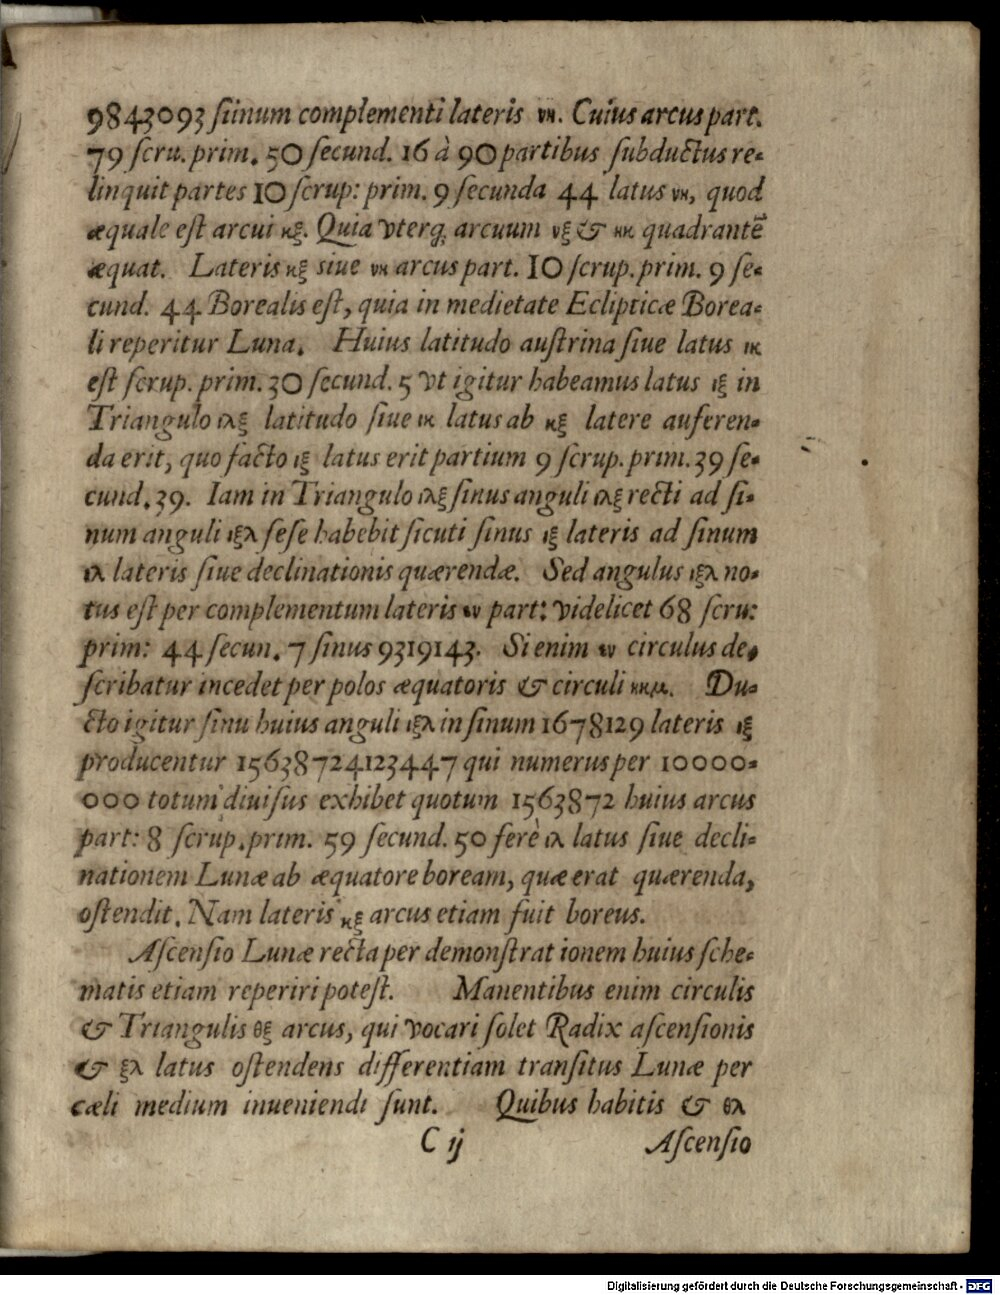 9843093 ſiinum complementi lateris νκ. Cuius arcus part.
79 ſcru. prim. 50 ſecund. 16 à 90 partibus ſubductus re-
linquit partes 10 ſcrup: prim. 9 ſecunda 44 latus νκ, quod
æquale eſt arcui κξ. Quia vterq; arcuum νξ & κκ quadrantē
æquat. Lateris κξ siue νκ arcus part. 10 ſcrup. prim. 9 ſe-
cund. 44 Borealis eſt, quia in medietate Eclipticæ Borea-
li reperitur Luna. Huius latitudo auſtrina ſiue latus ικ
eſt ſcrup. prim. 30 ſecund. 5 vt igitur habeamus latus ιξ in
Triangulo ιλξ latitudo ſiue ικ latus ab κξ latere auferen-
da erit, quo facto ιξ latus erit partium 9 ſcrup. prim. 39 ſe-
cund. 39. Iam in Triangulo ιλξ ſinus anguli ιλξ recti ad ſi-
num anguli ιξλ ſeſe habebit ſicuti ſinus ιξ lateris ad ſinum
ιλ lateris ſiue declinationis quærendæ. Sed angulus ιξλ no-
tus eſt per complementum lateris εν part: videlicet 68 ſcru:
prim: 44 ſecun. 7 ſinus 9319143. Si enim εν circulus de-
ſcribatur incedet per polos æquatoris & circuli κκμ. Du-
cto igitur ſinu huius anguli ιξλ in ſinum 1678129 lateris ιξ
producentur 15638724123447 qui numerus per 10000-
000 totum diuiſus exhibet quotum 1563872 huius arcus
part: 8 ſcrup. prim. 59 ſecund. 50 ferè ιλ latus ſiue decli-
nationem Lunæ ab æquatore boream, quæ erat quærenda,
oſtendit. Nam lateris κξ arcus etiam fuit boreus.
Aſcenſio Lunæ recta per demonſtrat ionem huius ſche-
matis etiam reperiri poteſt. Manentibus enim circulis
& Triangulis θξ arcus, qui vocari ſolet Radix aſcenſionis
& ξλ latus oſtendens differentiam tranſitus Lunæ per
cæli medium inueniendi ſunt. Quibus habitis & θλ
C ij Aſcenſio
Digitalisierung gefördert durch die Deutsche Forschungsgemeinschaft - DFG